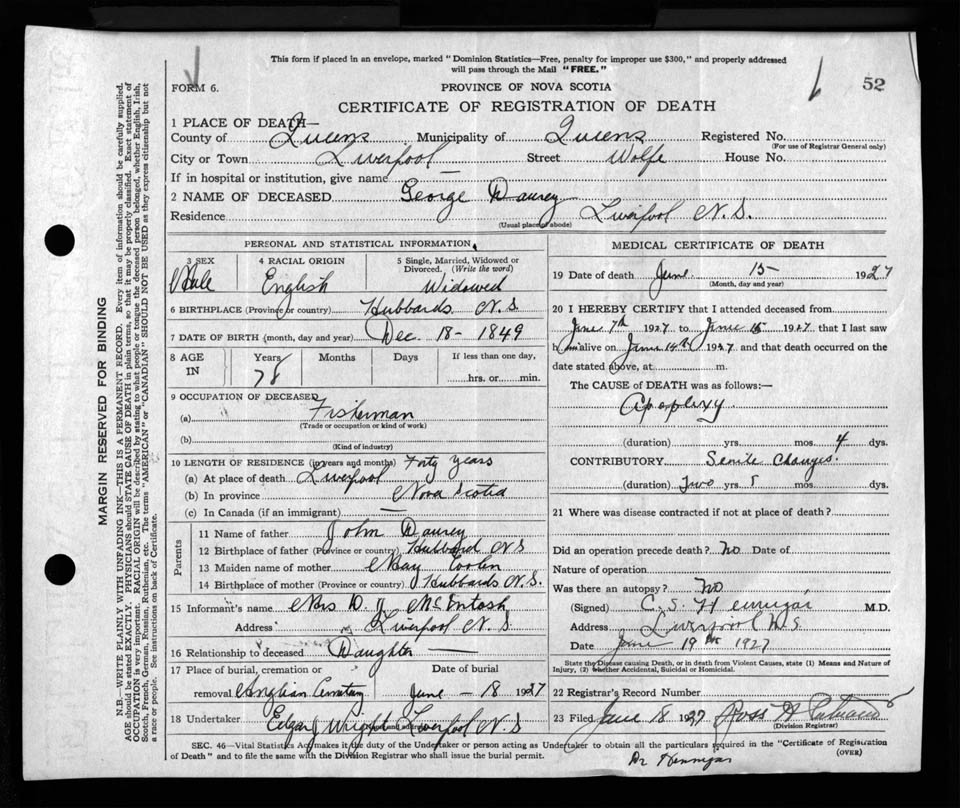 This form if placed in an envelope, marked "Dominion Statistics—Free, penalty for improper use $300," and properly addressed
will pass through the Mail "FREE."
FORM 6.
PROVINCE OF NOVA SCOTIA
52
CERTIFICATE OF REGISTRATION OF DEATH
1 PLACE OF DEATH—
County of Queens Municipality of Queens Registered No.
(For use of Registrar General only)
City or Town Liverpool Street Wolfe House No.
If in hospital or institution, give name —
2 NAME OF DECEASED George Daurey
Residence Liverpool N.S.
(Usual place of abode)
PERSONAL AND STATISTICAL INFORMATION
3 SEX
Male
4 RACIAL ORIGIN
English
5 Single, Married, Widowed or
Divorced. (Write the word)
Widowed
6 BIRTHPLACE (Province or country) Hubbards N.S.
7 DATE OF BIRTH (month, day and year) Dec. 18 - 1849
8 AGE
IN
Years
78
Months
Days
If less than one day,
hrs. or min.
9 OCCUPATION OF DECEASED
(a) Fisherman
(Trade or occupation or kind of work)
(b)
(Kind of industry)
10 LENGTH OF RESIDENCE (in years and months) Forty Years
(a) At place of death Liverpool
(b) In province Nova Scotia
(c) In Canada (if an immigrant) —
Parents
11 Name of father John Daurey
12 Birthplace of father (Province or country) Hubbard N S
13 Maiden name of mother May
14 Birthplace of mother (Province or country) Hubbards N.S.
15 Informant's name Mrs D. McIntosh
Address Liverpool N.S
16 Relationship to deceased Daughter —
17 Place of burial, cremation or
removal Anglian Cemetary
Date of burial
June - 18 1927
18 Undertaker Edgar J Wright Liverpool N.S
MEDICAL CERTIFICATE OF DEATH
19 Date of death June 15 - 1927
(Month, day and year)
20 I HEREBY CERTIFY that I attended deceased from
June 7th 1927 to June 15 1927, that I last saw
him alive on June 14th 1927 and that death occurred on the
date stated above, at m.
The CAUSE of DEATH was as follows:—
Apoplexy
(duration) yrs. mos. 4 dys.
CONTRIBUTORY Senile Changes.
(duration) Two yrs. mos. dys.
21 Where was disease contracted if not at place of death?
Did an operation precede death? No Date of
Nature of operation
Was there an autopsy? No
(Signed) C. S. Hennigar M.D.
Address Liverpool N.S.
Date June 19th 1927
State the Disease causing Death, or in death from Violent Causes, state (1) Means and Nature of
Injury, (2) whether Accidental, Suicidal or Homicidal.
22 Registrar's Record Number
23 Filed June 18 1927 Ross
(Division Registrar)
SEC. 46—Vital Statistics Act makes it the duty of the Undertaker or person acting as Undertaker to obtain all the particulars required in the "Certificate of Registration
of Death" and to file the same with the Division Registrar who shall issue the burial permit.
(OVER)
Dr Hennigar
MARGIN RESERVED FOR BINDING
N.B.—WRITE PLAINLY WITH UNFADING INK—THIS IS A PERMANENT RECORD. Every item of information should be carefully supplied.
AGE should be stated EXACTLY. PHYSICIANS should STATE CAUSE OF DEATH in plain terms, so that it may be properly classified. Exact statement of
OCCUPATION is very important. RACIAL ORIGIN will be described by stating to what people or tongue the deceased person belonged, whether English, Irish,
Scotch, French, German, Russian, Ruthenian, etc. The terms "AMERICAN" or "CANADIAN" SHOULD NOT BE USED as they express citizenship but not
a race or people. See instructions on back of Certificate.